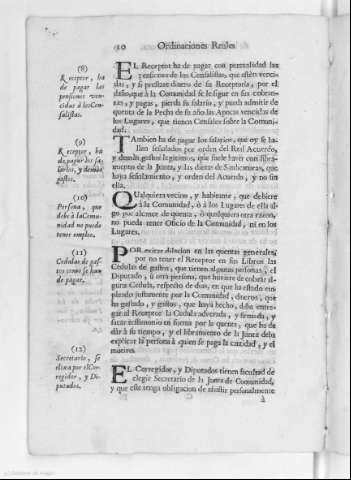 10 Ordinaciones Reales
(8)
Receptor, ha
de pagar las
pensiones ven-
cidas à los Cen-
salistas.
EL Receptor ha de pagar con puntualidad las
pensiones de los Censalistas, que estèn venci-
das, y si prestare dinero de su Receptoria, por el
daño que à la Comunidad se le sigue en sus cobran-
zas, y pagas, pierda su salario, y pueda admitir de
quenta de la Pecha de su año las Apocas vencidas de
los Lugares, que tienen Censales sobre la Comuni-
dad.
(9)
Receptor, ha
de pagar los sa-
larios, y demàs
gastos.
TAmbien ha de pagar los salarios, que oy se ha-
llan señalados por orden del Real Acuerdo,
y demàs gastos legitimos, que suele haver con libra-
mentos de la Junta, y las dietas de Sindicaturas, que
haya señalamiento, y orden del Acuerdo, y no sin
ella.
(10)
Persona, que
debe à la Comu-
nidad no pueda
tener empleo.
QUalquiera vecino, y habitante, que debiere
à la Comunidad, ò à los Lugares de ella al-
go por alcance de quenta, ò qualquiera otra razon,
no pueda tener Oficio de la Comunidad, ni en los
Lugares.
(11)
Cedulas de gas-
tos como se han
de pagar.
POR evitar dilacion en las quentas generales,
por no tener el Receptor en sus Libros las
Cedulas de gastos, que tienen algunas personas, el
Diputado, ò otra persona, que huviere de cobrar al-
guna Cedula, respecto de dias, en que ha estado em-
pleado justamente por la Comunidad, dineros, que
ha gastado, y gastos, que haya hecho, deba entre-
gar al Receptor la Cedula adverada, y firmada, y
facar testimonio en forma por la quenta, que ha de
dàr à su tiempo, y el libramento de la Junta deba
explicar la persona à quien se paga la cantidad, y el
motivo.
(12)
Secretario, se
elixa por el Cor-
regidor, y Di-
putados.
EL Corregidor, y Diputados tienen facultad de
elegir Secretario de la Junta de Comunidad,
y que este tenga obligacion de assistir personalmente
à